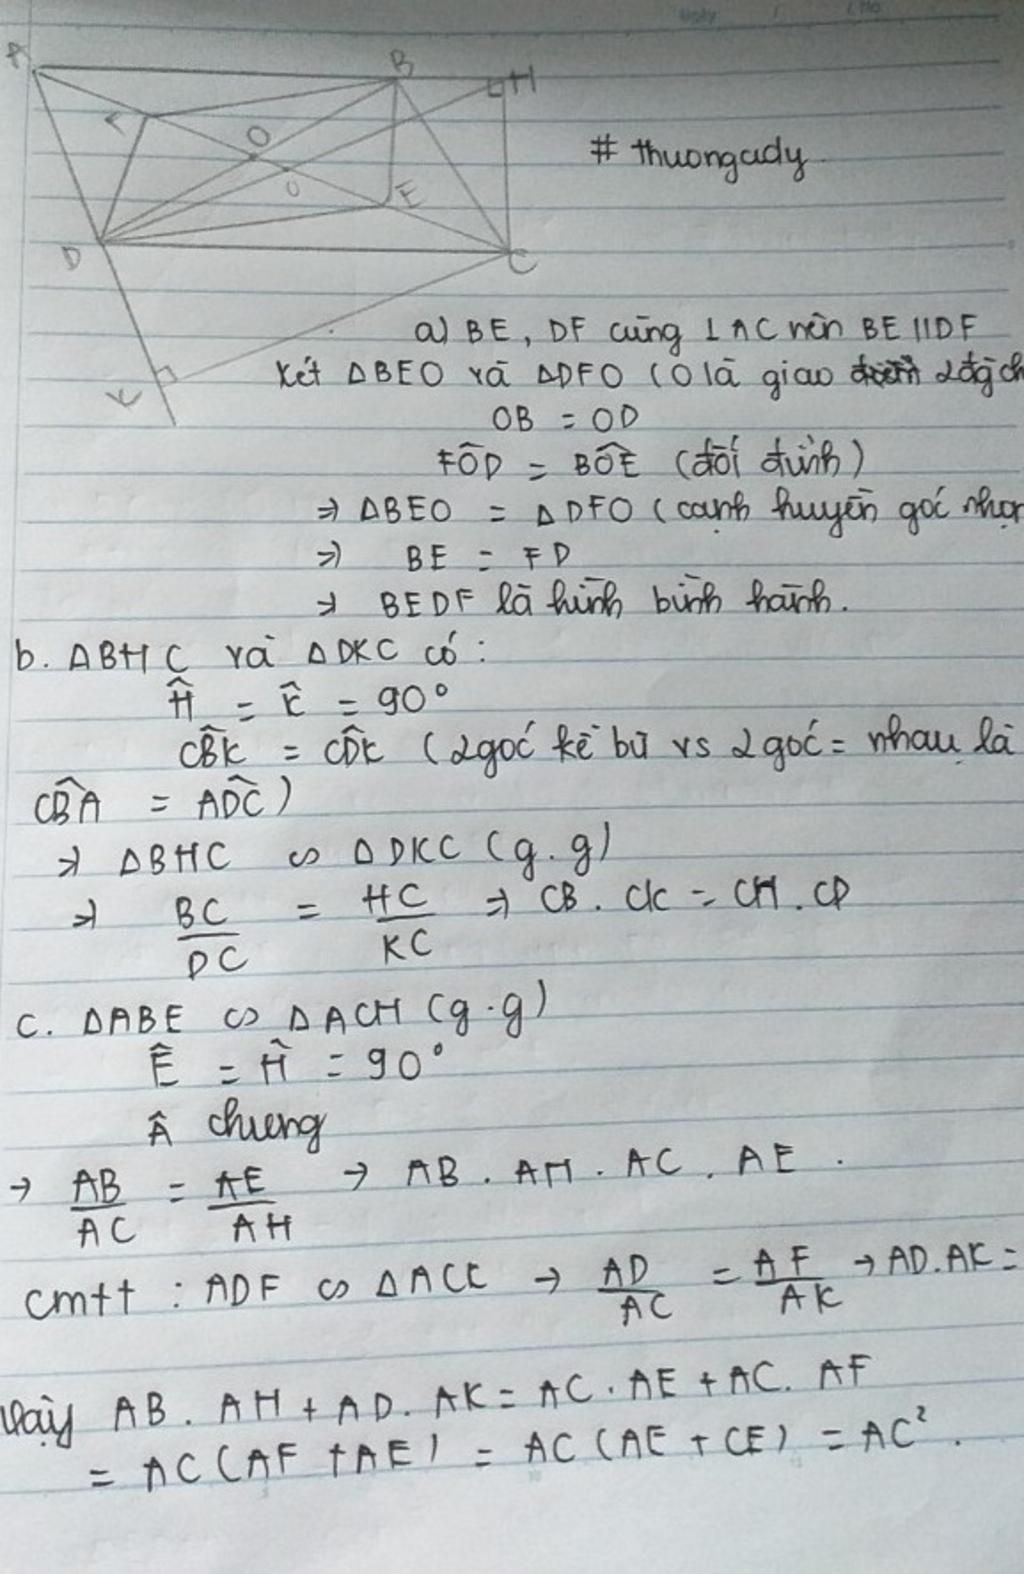 A
B
H
F
O
# thuongcdy.
E
D
C
a) BE, DF cùng ⊥ AC nên BE // DF
Xét ΔBEO và ΔDFO (O là giao 2 đg ch
K
OB = OD
FÔD = BÔE (đối đỉnh)
⇒ ΔBEO = ΔDFO (cạnh huyền góc nhọn
⇒ BE = FD
⇒ BEDF là hình bình hành.
b. ΔBHC và ΔDKC có:
Ĥ = K̂ = 90°
CB̂K = CD̂K (2 góc kề bù vs 2 góc = nhau là
CB̂A = AD̂C)
⇒ ΔBHC ∽ ΔDKC (g.g)
⇒ BC/DC = HC/KC ⇒ CB . CK = CH . CD
c. ΔABE ∽ ΔACH (g.g)
Ê = Ĥ = 90°
Â chung
→ AB/AC = AE/AH → AB . AH . AC . AE .
cmtt : ADF ∽ ΔACK → AD/AC = AF/AK → AD.AK =
Vậy AB . AH + AD . AK = AC . AE + AC . AF
= AC (AF + AE) = AC (AE + CE) = AC² .